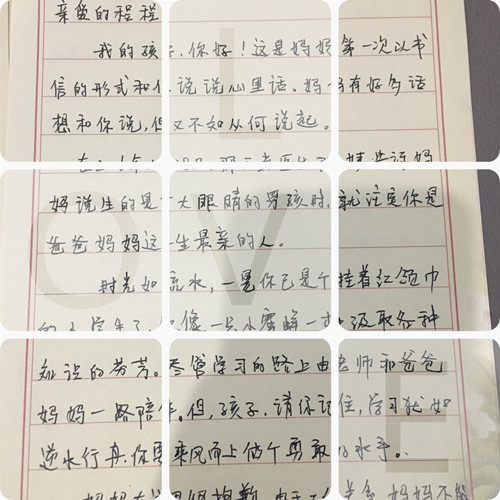 亲爱的程程
我的孩子,你好!这是妈妈第一次以书
信的形式和你说说心里话。妈妈有好多话
想和你说,但又不知从何说起。
妈说生的是个大眼睛的男孩时,就注定你是
爸爸妈妈这一生最亲的人。
时光如流水,一晃你已是个挂着红领巾
的小学生了,像一只小蜜蜂一 汲取各种
知识的芬芳。尽管学习的路上由老师和爸爸
妈妈一路陪伴。但,孩子,请你记住,学习就如
逆水行舟,你要乘风而上做个勇敢的水手。
L
O V
E